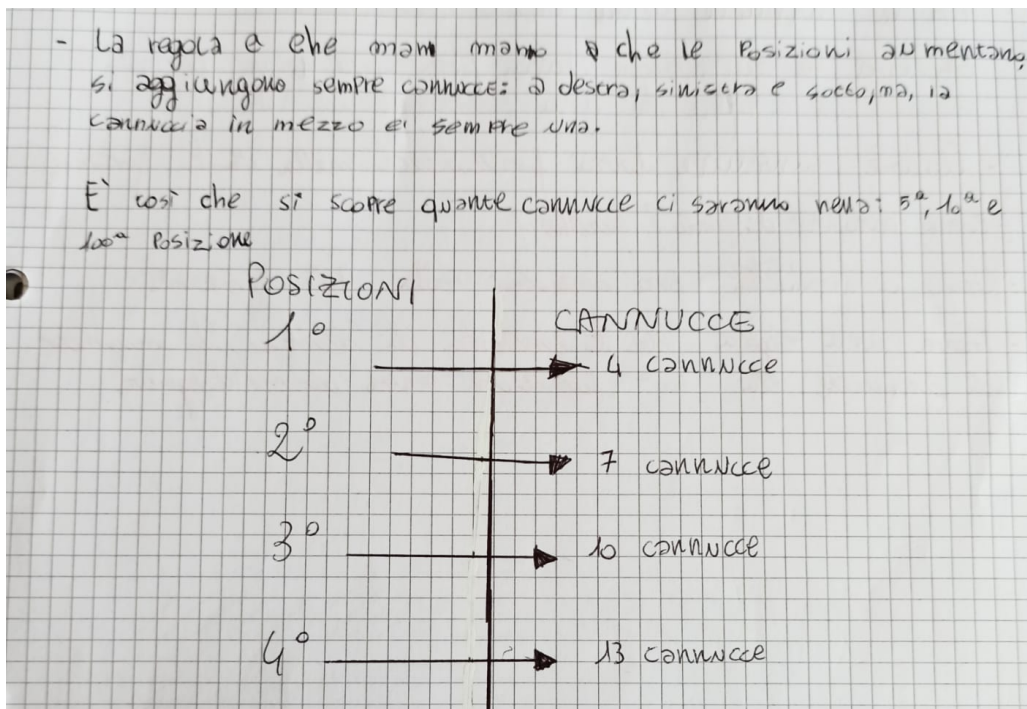 - La regola e ehe mam mano a che le Posizioni aumentano,
si aggiungono sempre cannucce: a destra, sinistra e sotto, ma, la
cannuccia in mezzo e' sempre una.
E' così che si scopre quante cannucce ci saranno nella: 5ª, 10ª e
100ª Posizione
POSIZIONI
CANNUCCE
1º
4 cannucce
2º
7 cannucce
3º
10 cannucce
4º
13 cannucce